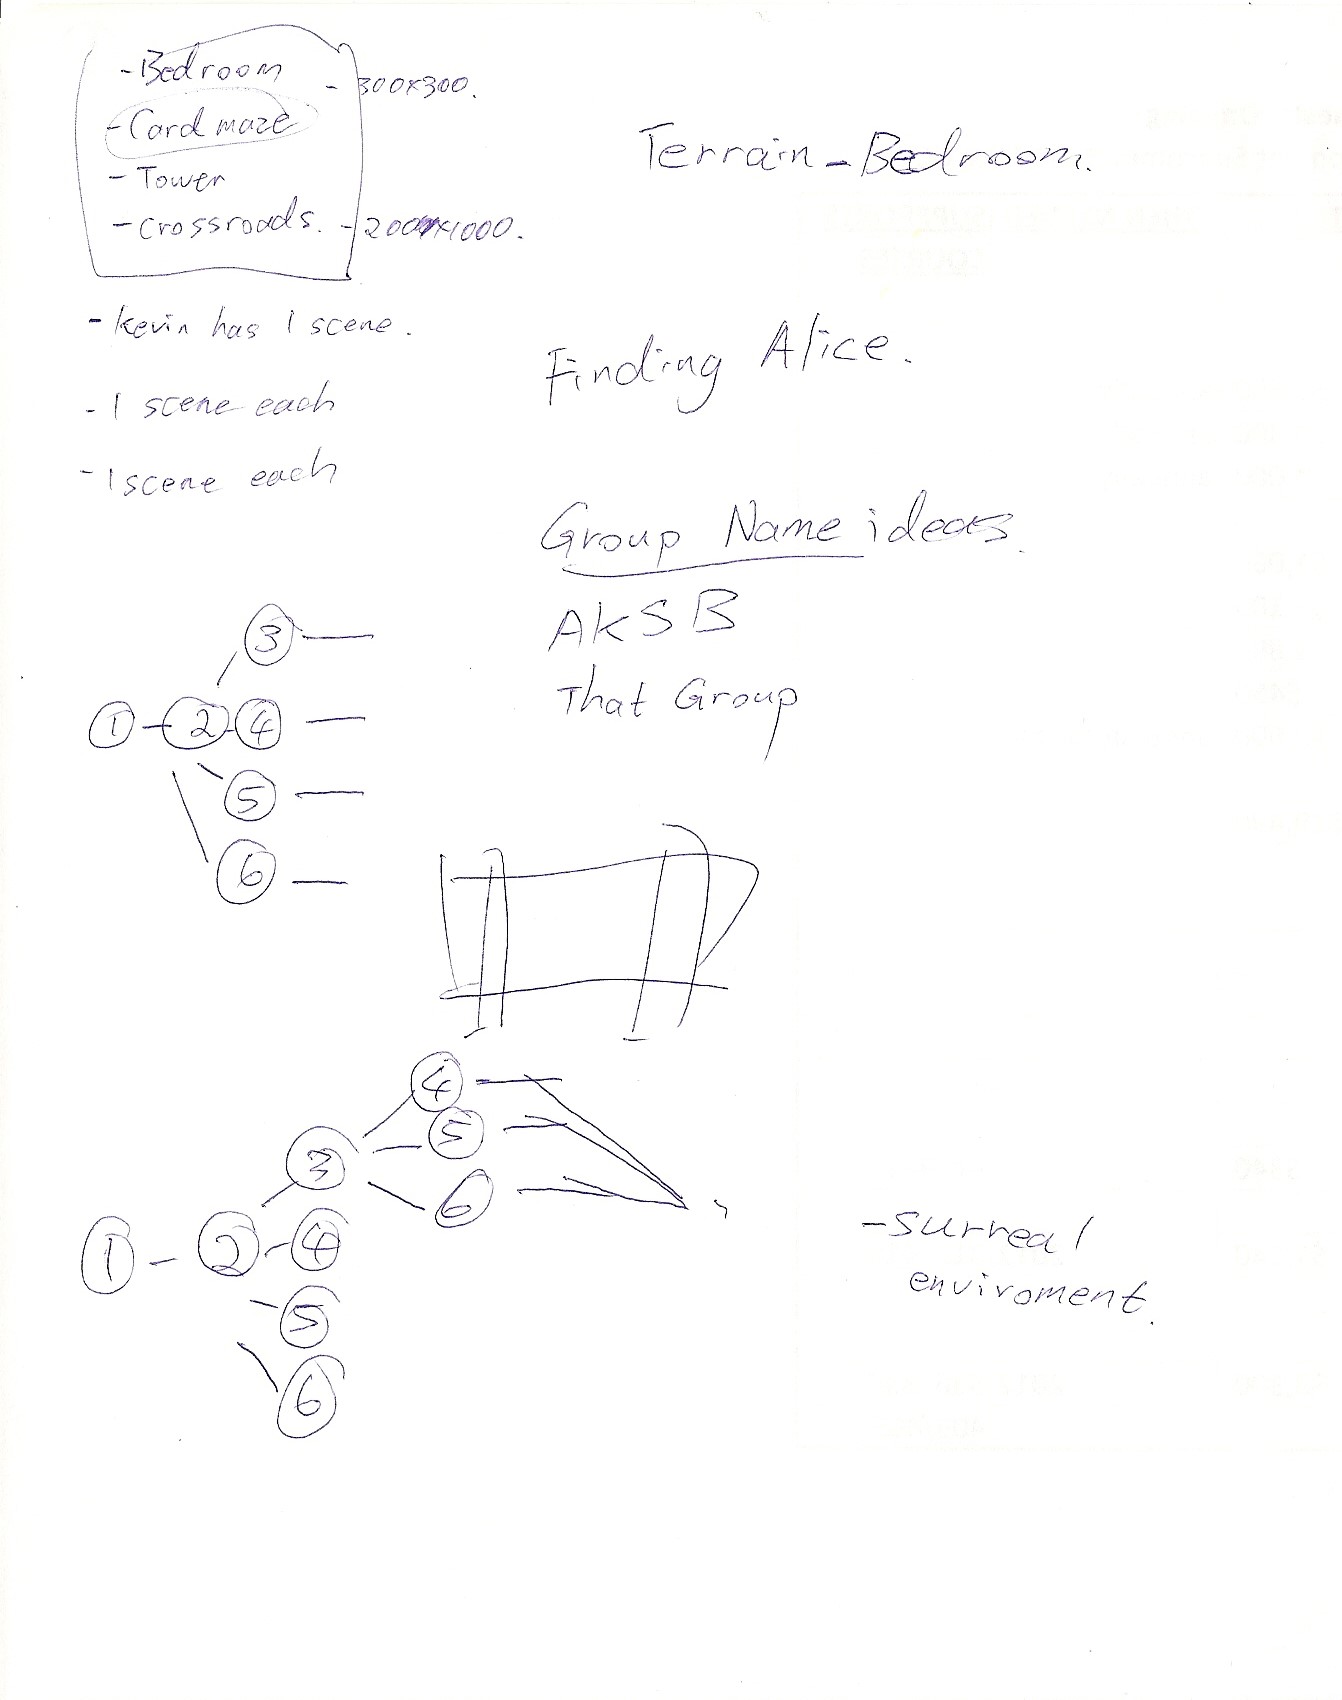 -Bedroom - 300x300.
-Card maze
- Tower
- Crossroads. - x1000.
Terrain - Bedroom.
- kevin has 1 scene.
- 1 scene each
- 1 scene each
Finding Alice.
Group Name ideas.
AKSB
That Group
3
1 - 2 - 4
5
6
4
5
3
6
1 - 2 - 4
5
6
- surreal
enviroment.